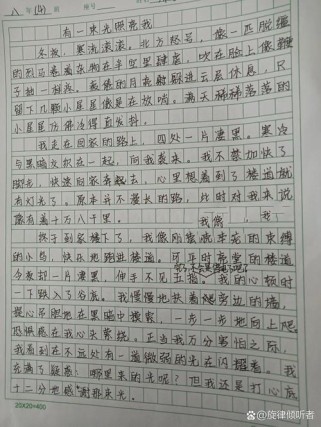 八 年 (4) 班
有一束光照亮我
冬夜，寒流滚滚。北方怒号，像一匹脱缰
的烈马卷着杂物在半空里肆虐，吹在脸上像鞭
子抽一样疼。疲倦的月亮躲进云层休息，只
留下几颗小星星像是在放哨。满天稀稀落落的
小星星仿佛冷得直发抖。
我走在回家的路上，四处一片漆黑。寒冷
与黑暗交织在一起，向我袭来。我不禁加快了
脚步，快速回家奔去，心里想着到了楼道就
有灯光了。原本并不漫长的路，此时对我来说
有着十万八千里。
终于到家楼下了，我像刚挣脱牢笼的束缚
的小鸟，快乐地跑进楼道。可平时亮堂的楼道
今夜却一片漆黑，伸手不见五指。我的心顿时
一下跌入了谷底。我慢慢地扶着旁边的墙，
提心吊胆地在黑暗中摸索，一步一步地向上爬
恐惧在我心头萦绕。正当我万分害怕之际，
我看到在不远处有一道微弱的光在闪耀着。我
充满了疑惑：哪里来的光呢？但我还是打心底
十二分地感谢那束光。
20X20=400
@旋律倾听者